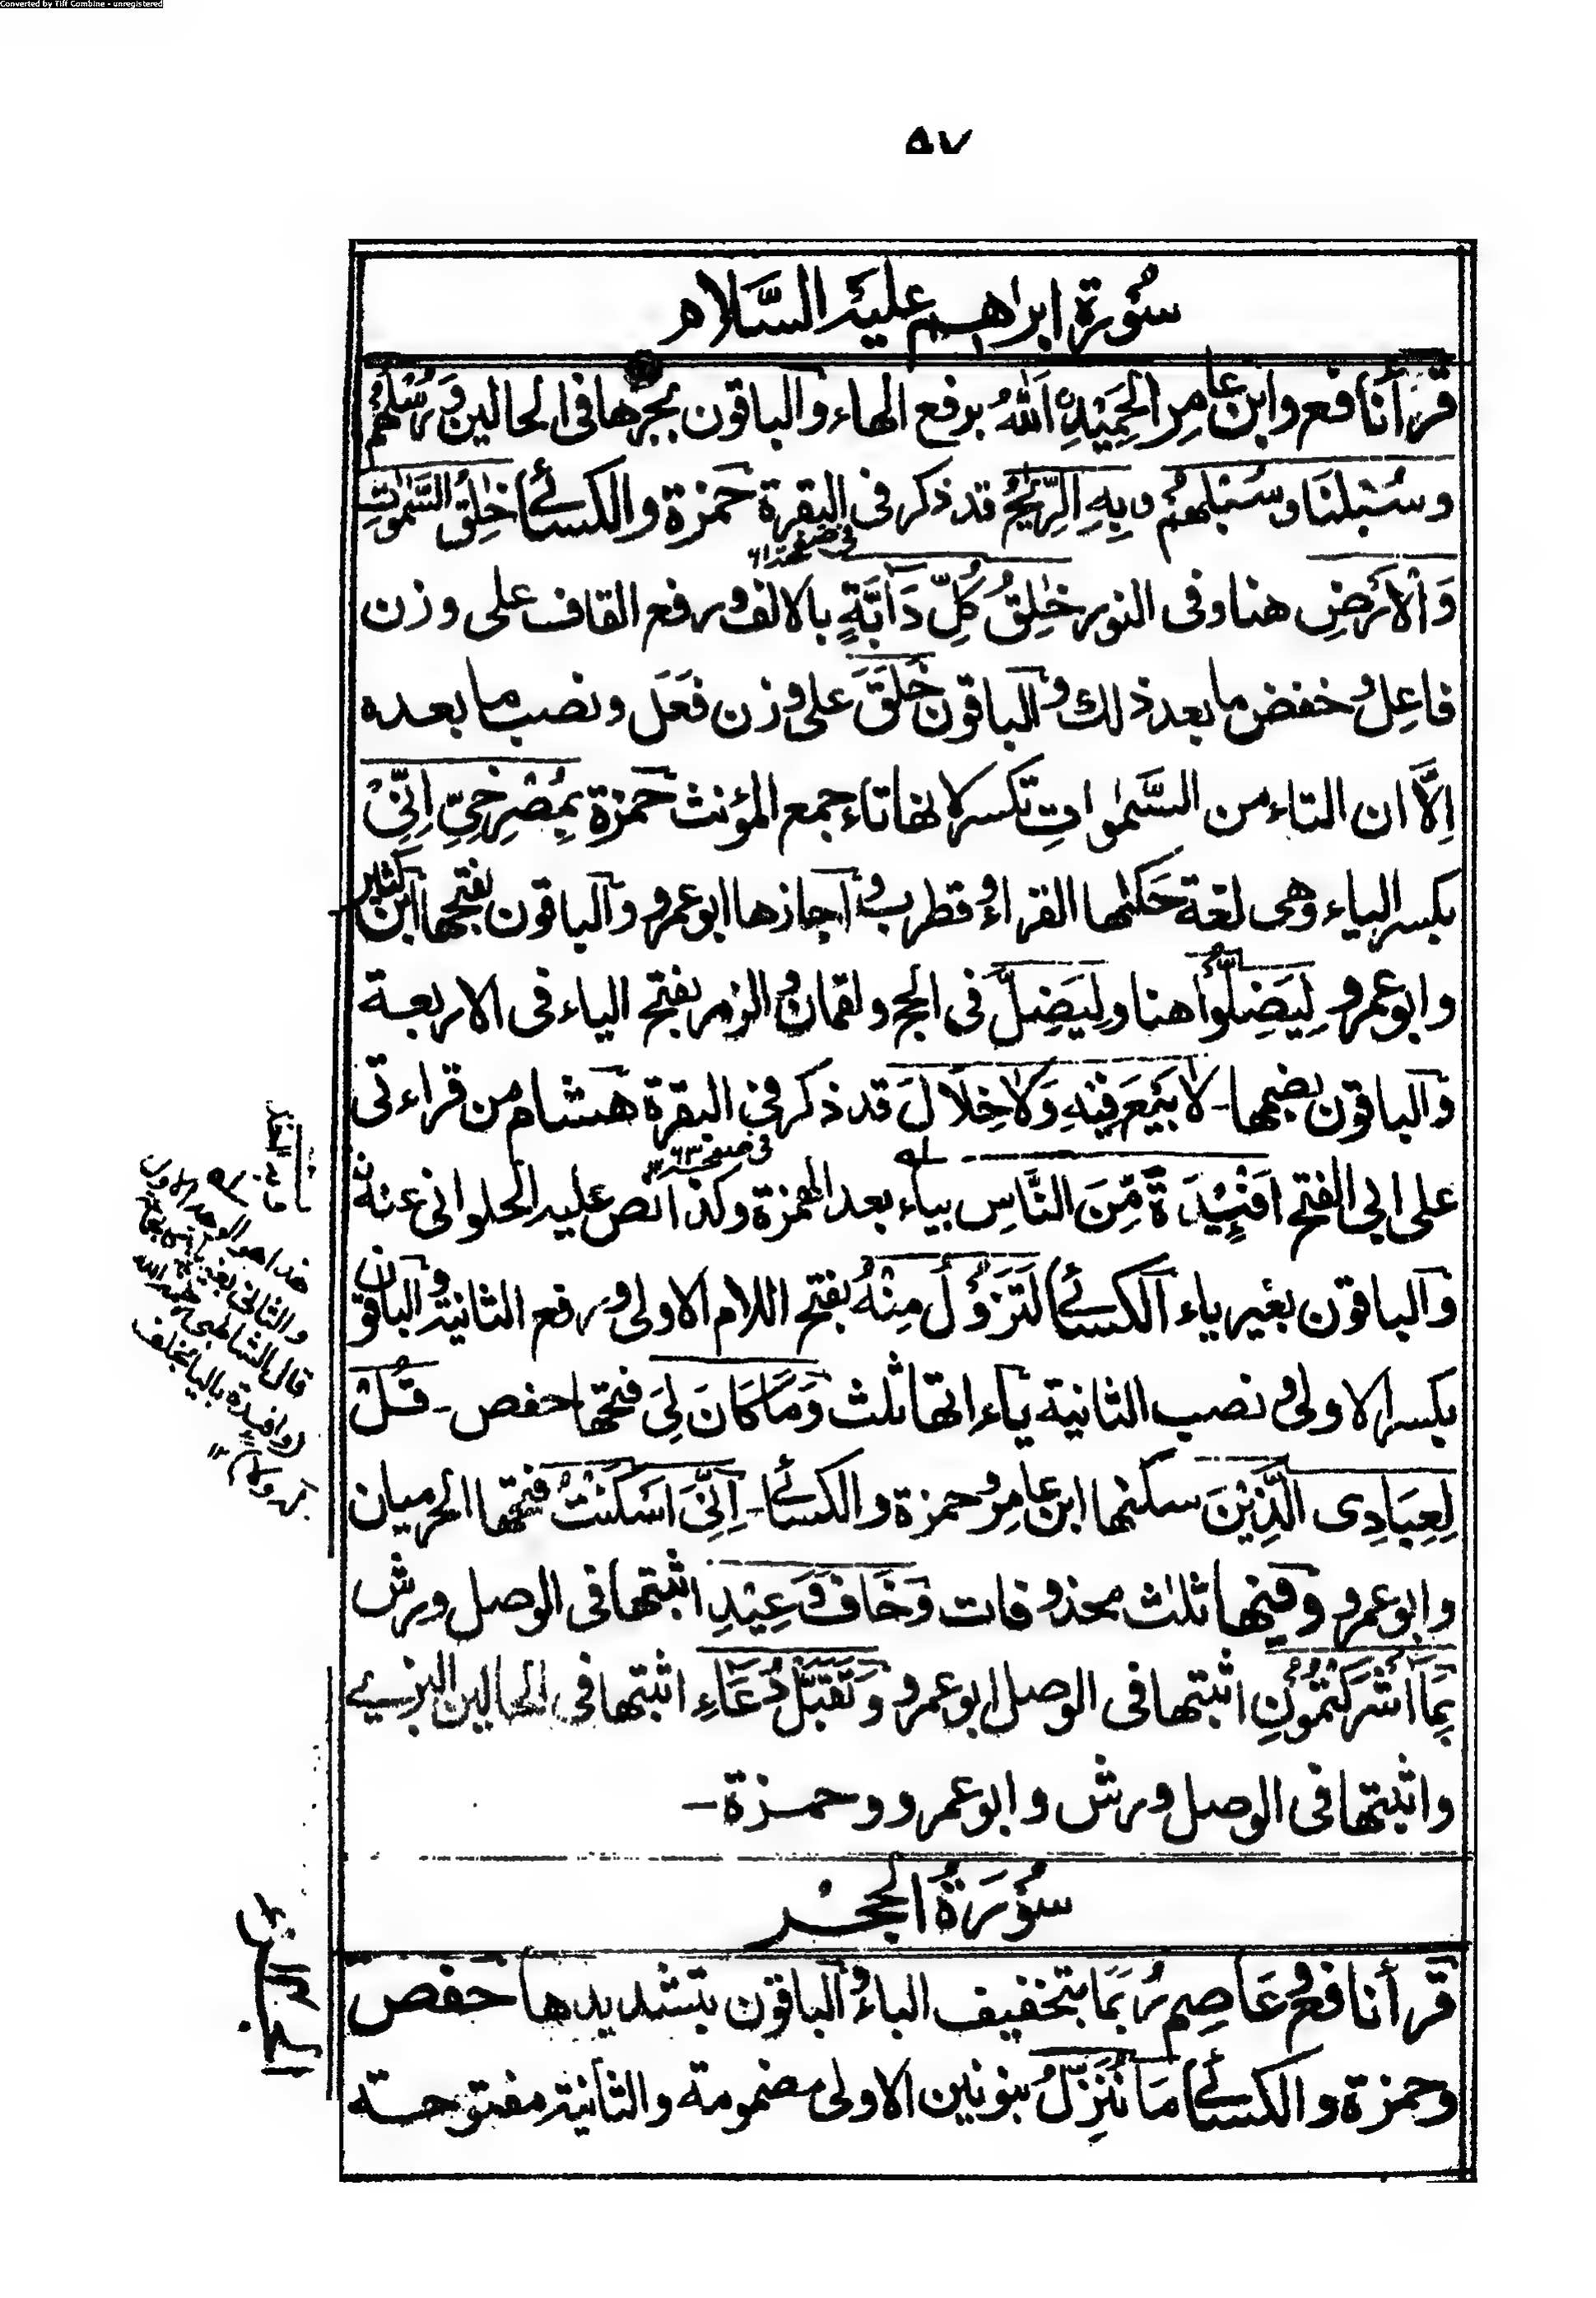 Converted by Tiff Combine - unregistered
۵۷
سُوْرَة اِبراهيم عليه السَّلام
قرأ نافع وابن عامِر الْحَمِيْدِ اَللهُ برفع الهاء والباقون بجرها فى الحالين وَرُسُلُهُمْ
وسُبْلَنَا وسُبْلَهُمْ وبِهِ الرِّيْحُ قد ذكر فى البقرة حمزة والكسائے خٰلِقُ السَّمٰوٰتِ
فى صفحه ٦١
وَالْاَرْضِ هنا وفى النور خٰلِقُ كُلِّ دَآبَّةٍ بالالف ورفع القاف على وزن
فاعِل وخفض ما بعد ذلك والباقون خَلَقَ على وزن فَعَلَ ونصب ما بعده
اِلَّا ان التاء من السَّمٰوات تكسر لانها تاء جمع المؤنث حمزة بِمُصْرِخِيِّ اِنِّىْ
بكسر الياء وهى لغة حَكٰها الفراء وقطرب واجازها ابو عمرو والباقون بفتحها ابن كثير
وابو عمرو لِيَضِلُّوْا هنا ولِيَضِلَّ فى الحج ولقمان والزمر بفتح الياء فى الاربعة
والباقون بضمها - لَا بَيْعَ فِيْهِ وَلَا خِلَالَ قد ذكر فى البقرة هشام من قراءتى
فى صفحه ٦٣
على ابى الفتح اَفْئِيْدَةً مِّنَ النَّاسِ بياء بعد الهمزة وكذا نص عليه الحلوانى عنه
والباقون بغير ياء الكسائے لَتَزُوْلُ مِنْهُ بفتح اللام الاولى ورفع الثانية والباقون
بكسر الاولى ونصب الثانية ياءاتها ثلث وَمَا كَانَ لِىَ فتحها حفص - قُلْ
لِعِبَادِى الَّذِيْنَ سكنها ابن عامِر وحمزة والكسائے - اِنِّىَ اَسْكَنْتُ فتحها الحرميان
وابو عمرو وفيها ثلٰث محذوفات وَخَافَ وَعِيْدِ اثبتها فى الوصل ورش
بِمَا اَشْرَكْتُمُوْنِ اثبتها فى الوصل ابو عمرو وَتَقَبَّلْ دُعَاءِ اثبتها فى الحالين البزى
واثبتها فى الوصل ورش وابو عمرو وحمزة -
هذا هو الوجه الاول
والثانى بغير
قال الشاطبى رحمه الله
وافئدة باليا بخلف
سُوْرَةُ الْحِجْر
قرأ نافع وعَاصِم رُبَمَا بتخفيف الباء والباقون بتشديدها حفص
وحمزة والكسائے مَا نُنَزِّلُ بنونين الاولى مضمومة والثانية مفتوحة